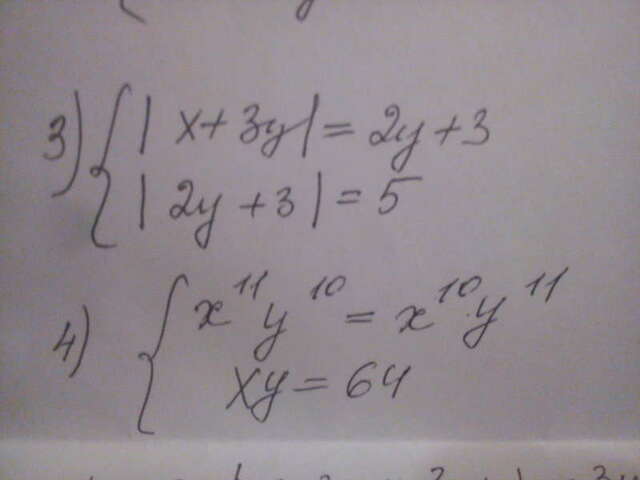 3) { |x+3y| = 2y+3
|2y+3| = 5
4) { x¹¹y¹⁰ = x¹⁰y¹¹
xy = 64